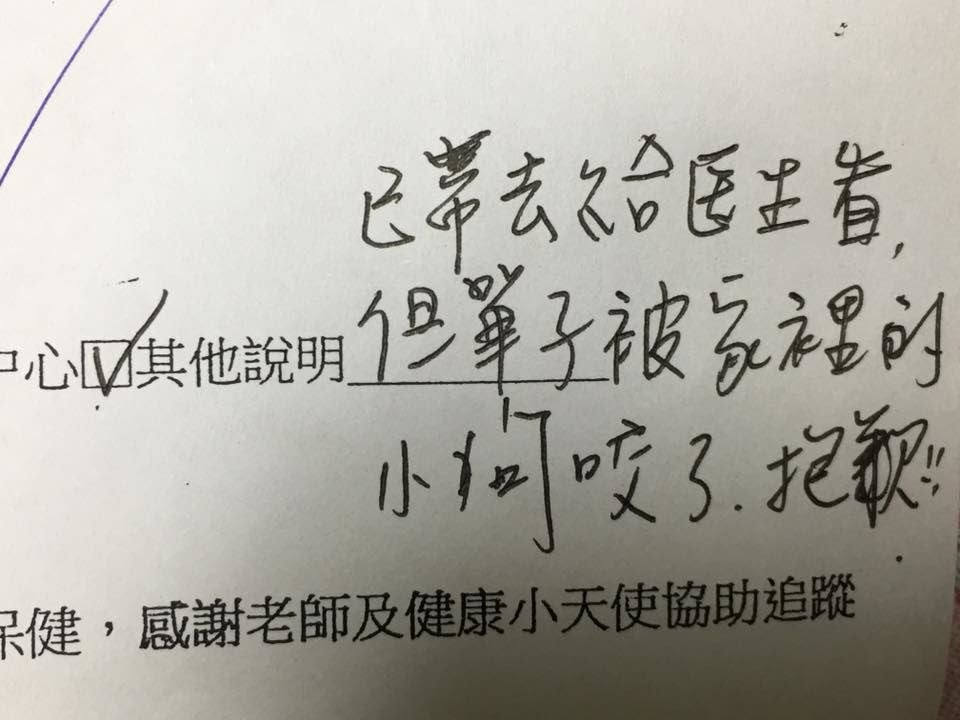 已帶去給医生看,
中心☑其他說明 但單子被家裡的
小狗咬了. 抱歉!!
保健，感謝老師及健康小天使協助追蹤